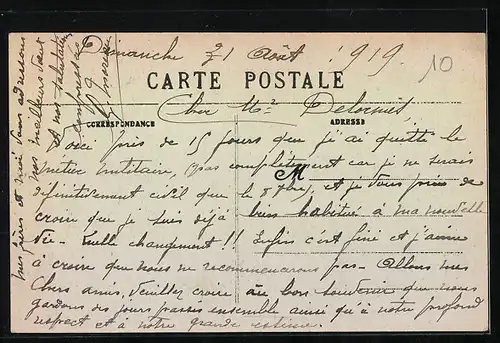 Dimanche 31 Août 1919.
10
CARTE POSTALE
Cher Mr Delornis
CORRESPONDANCE
ADRESSE
Voici près de 15 jours que j'ai quitté le
métier militaire, pas complètement car je ne serais
définitivement civil que le 8 7bre, et je vous prie de
croire que je suis déjà bien habitué à ma nouvelle
vie - Quelle changement !! Enfin c'est fini et j'aime
à croire que nous ne recommencerons pas - Allons mes
chers amis, veuillez croire au bon souvenir que nous
gardons des jours passés ensemble ainsi qu'à notre profond
respect et à notre grande estime.
Mes frères et moi vous adressons
nos meilleurs
et nos salutations
empressées